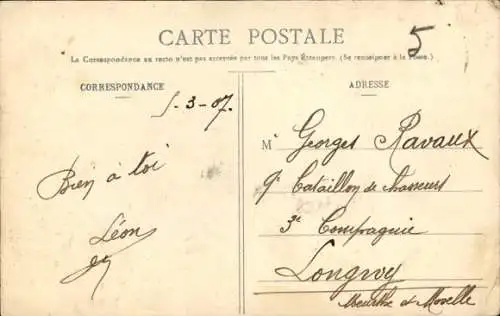 CARTE POSTALE
5
La Correspondance au recto n'est pas acceptée par tous les Pays Étrangers. (Se renseigner à la Poste.)
CORRESPONDANCE
ADRESSE
5-3-07.
Bien à toi
Léon
Mr Georges Ravaux
9e Bataillon de chasseurs
3e Compagnie
Longwy
Meurthe et Moselle